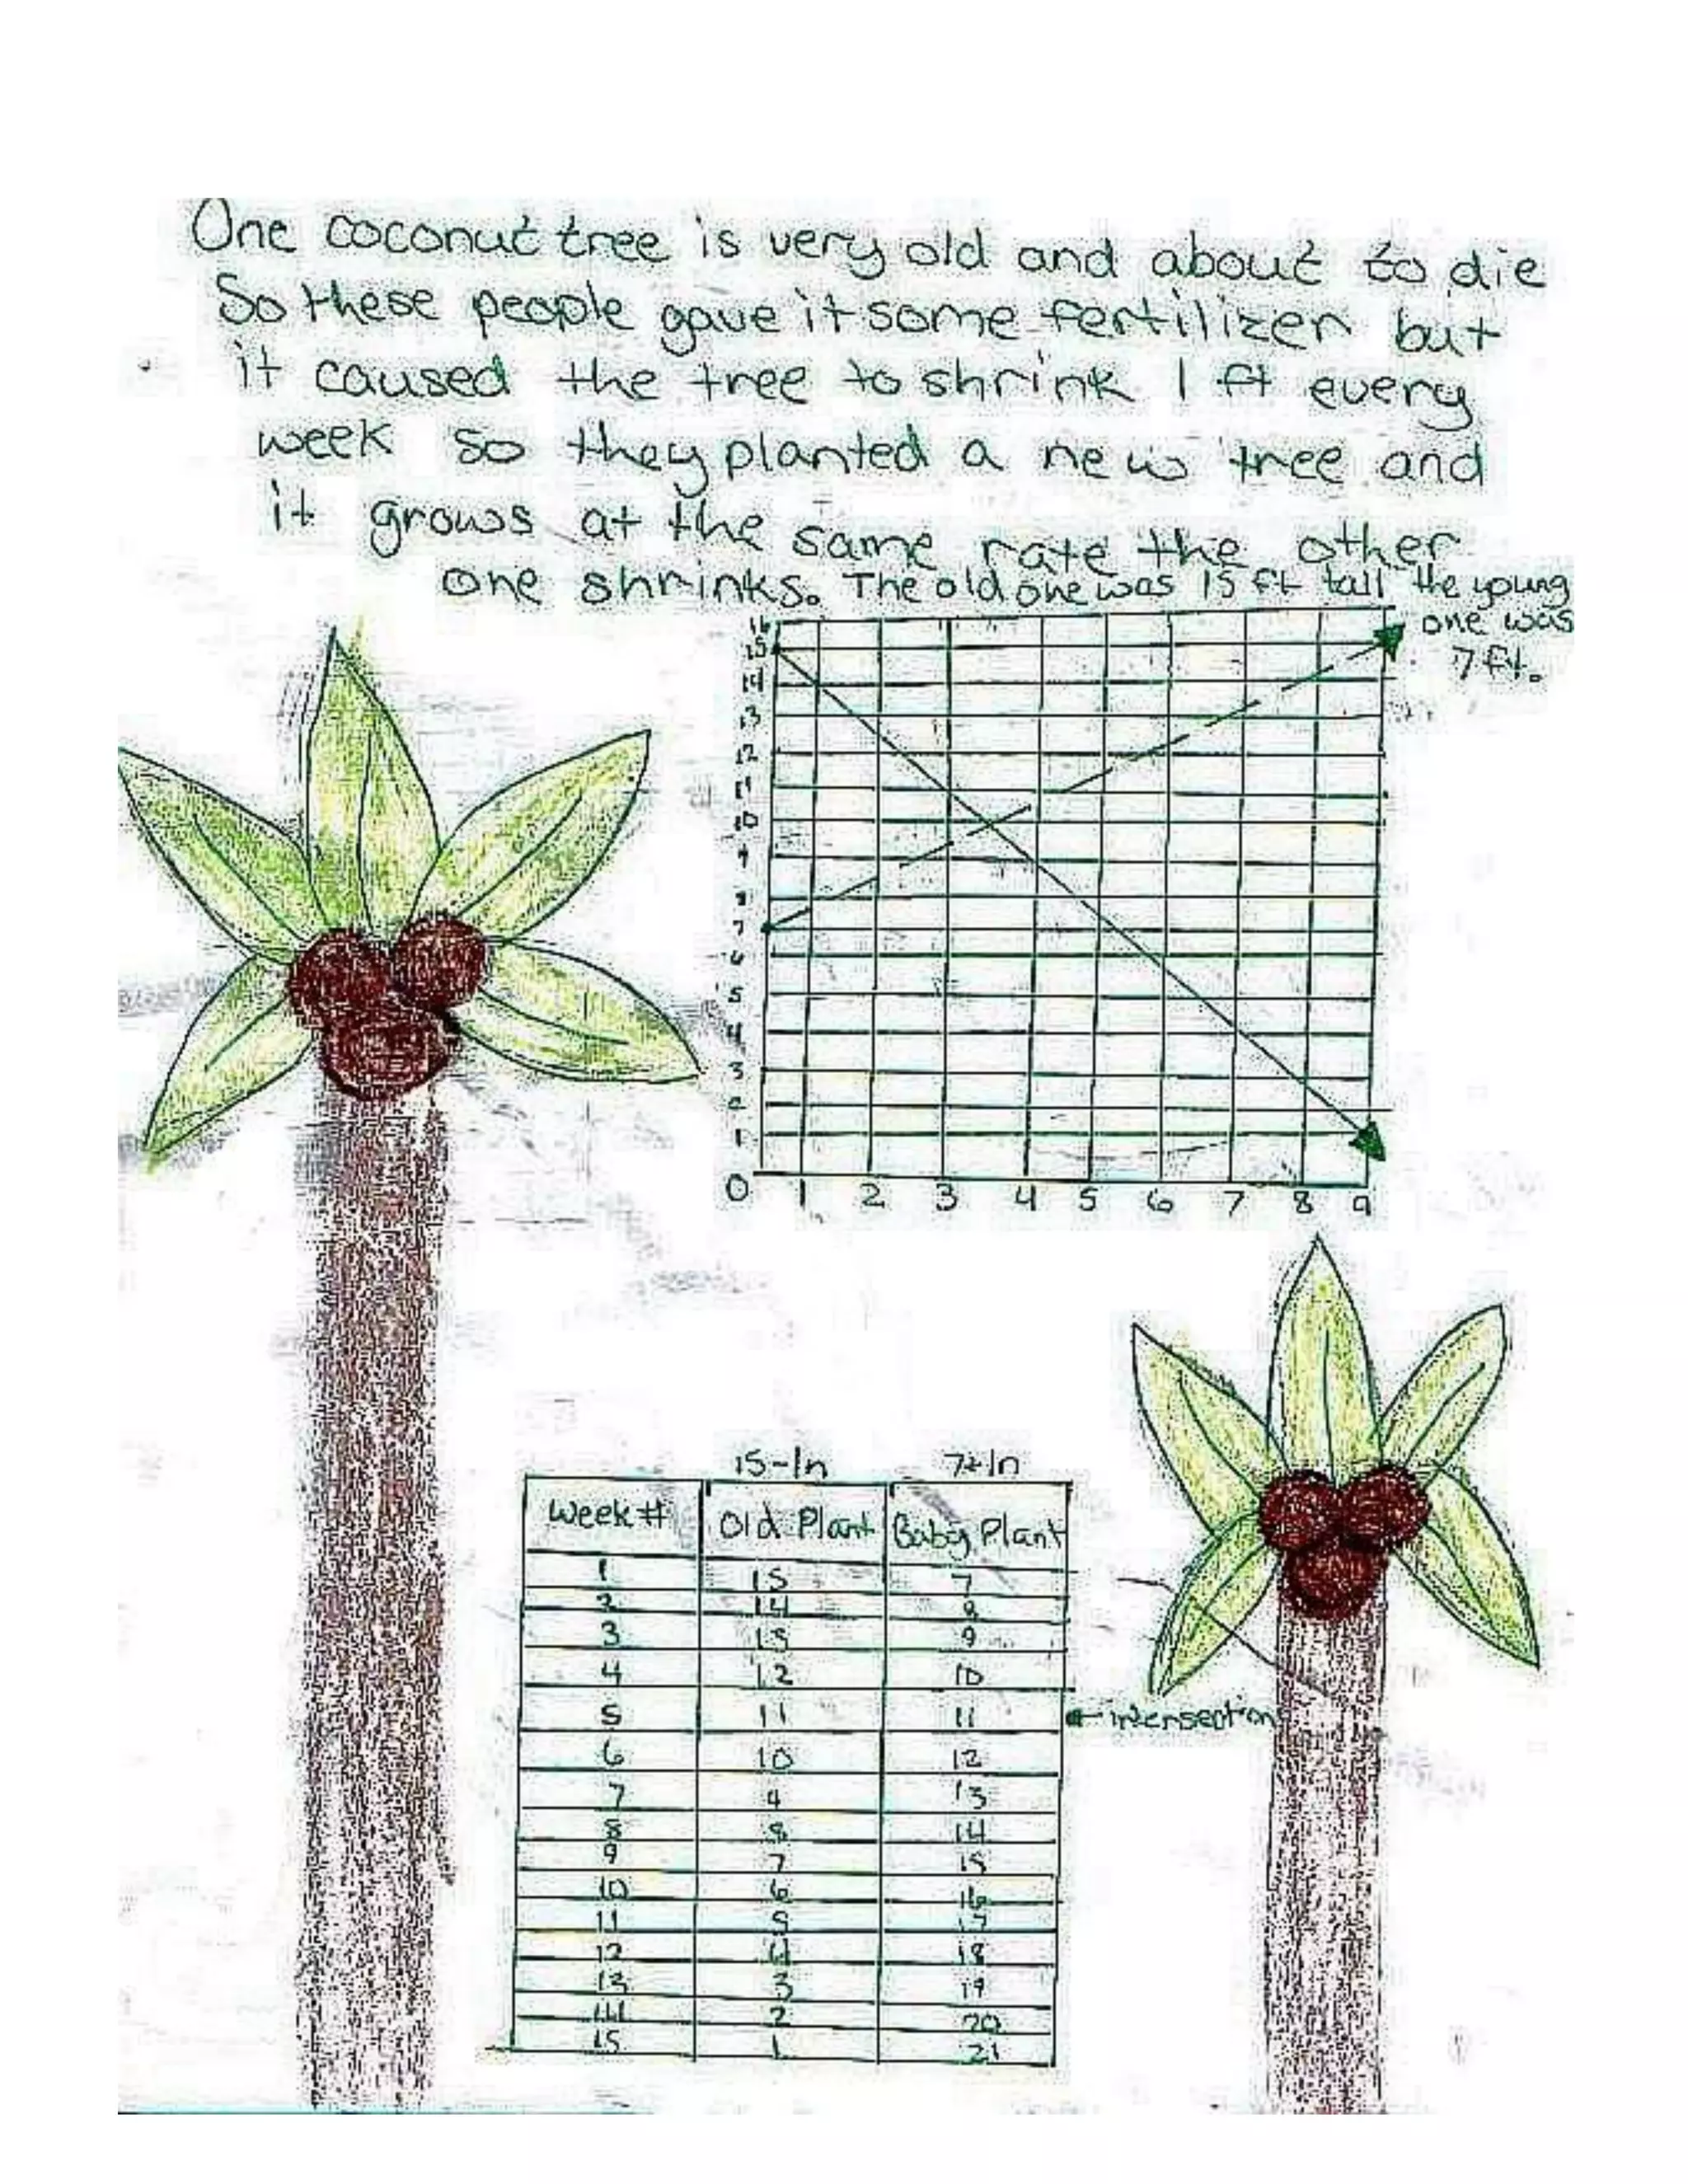 One coconut tree is very old and about to die
So these people gave it some fertilizer but
it caused the tree to shrink 1 ft every
week so they planted a new tree and
it grows at the same rate the other
one shrinks. The old one was 15 ft tall the young
one was
7 ft.
16
15
14
13
12
11
10
9
8
7
6
5
4
3
2
1
0 1 2 3 4 5 6 7 8 9
15-1n 7+1n
Week # Old Plant Baby Plant
1 15 7
2 14 8
3 13 9
4 12 10
5 11 11 ← intersection
6 10 12
7 9 13
8 8 14
9 7 15
10 6 16
11 5 17
12 4 18
13 3 19
14 2 20
15 1 21